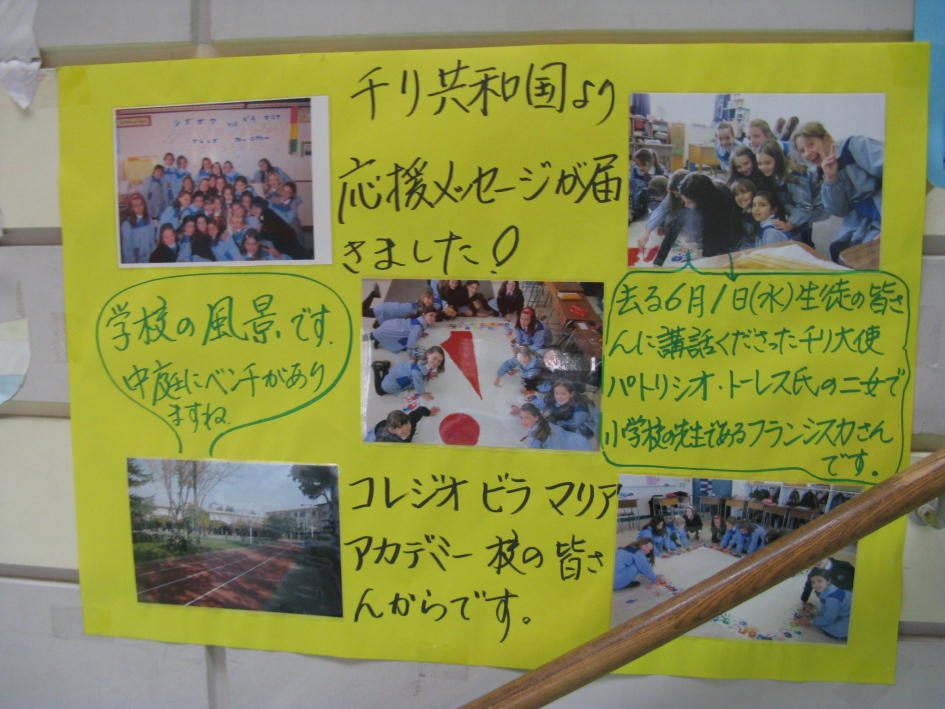 千リ共和国より
応援メッセージが届
きました！
学校の風景です.
中庭にベンチがあり
ますね.
去る6月1日(水)生徒の皆さ
んに講話くださった千リ大使
パトリシオ・トーレス氏の二女で
小学校の先生であるフランシスカさん
です。
コレジオ ビラ マリア
アカデミー校の皆さ
んからです。